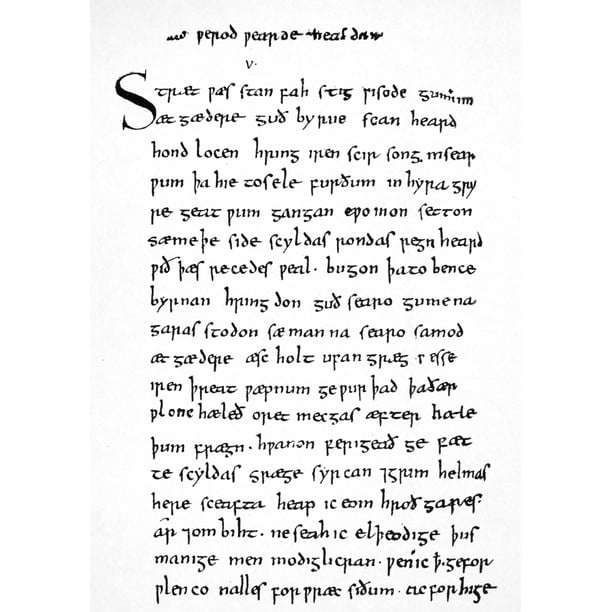 ƿið ƿerod ƿearde healdan
V.
Stræt ƿæs stan fah stig ƿisode gumum
æt gædere guð byrne scan heard
hond locen hring iren scir song insear
ƿum þa hie to sele furðum in hyra gry
re geat ƿum gangan cƿomon setton
sæmeþe side scyldas rondas regn heard
ƿið þæs recedes ƿeal · bugon þa to bence
byrnan hring don guð searo gumena
garas stodon sæ man na searo samod
æt gædere æsc holt ufan græg · ƿ esse
iren þreat ƿæpnum geƿurþad þa ðær
ƿlonc hæleð oret mecgas æfter hæle
þum frægn · hƿanon ferigeað ge fæt
te scyldas græge syrcan ⁊ grim helmas
here sceafta heap ic eom hroð gares ·
ar ⁊ om biht · ne seah ic elþeodige þus
manige men modiglicran · ƿen ic ꝥ · ge for
ƿlenco nalles for ƿræc siðum · ac for hige